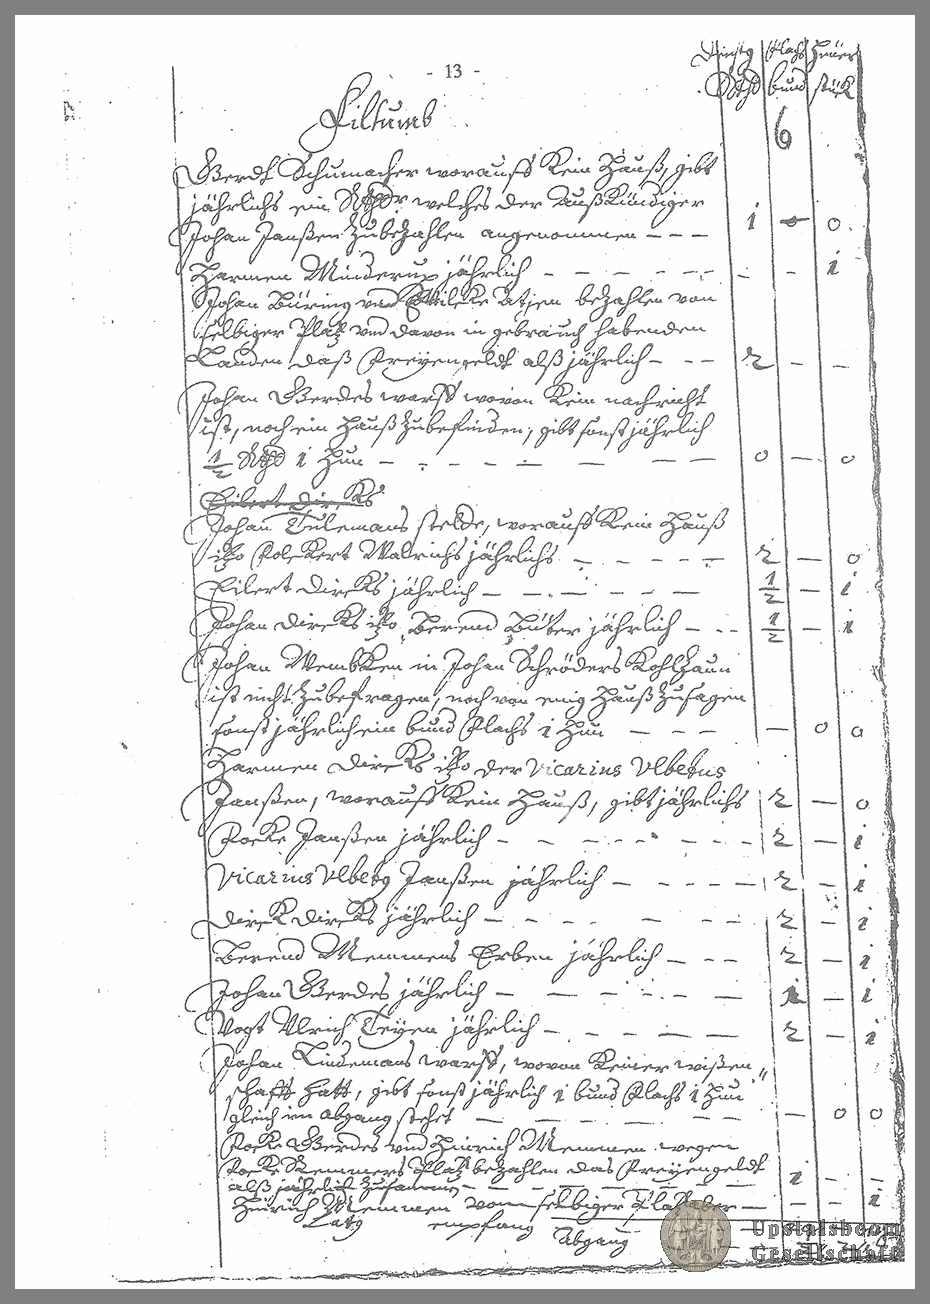 - 13 -
Dienstg Flachs Hüner
Rthd bund stück
Filsums
6
Gerdt Schumacher worauff Kein Hauß, gibt
jährlichs ein Rthdr welches der Außkündiger
Johan Janßen Zubezahlen angenommen - - - 1 o o
Harmen Minderup jährlich - - - - - - - - 1
Johan Büring und Wilcke Atjen bezahlen von
selbiger Platz und davon in gebrauch habenden
Landen daß Freyengeldt alß jährlich - - - 2 - -
Johan Gerdes warff wovon Kein nachricht
ist, noch ein Hauß Zubefinden, gibt sonst jährlich
1/2 Rthd 1 Hun - - - - - - - o - o
Eilert Dirks
Johan Tülemans stelde, worauff Kein Hauß
itzo Folckert Walrichs jährlichs - - - - - 2 - o
Eilert Dirks jährlich - - - - - - 1/2 - 1
Johan Dirks itzo Berend Büter jährlich - - - 1/2 - 1
Johan Wembken in Johan Schröders Kohlzaun
ist nicht Zubefragen, noch von einig Hauß Zusagen
sonst jährlich ein bund Flachs 1 Hun - - - - o o
Harmen Dirks itzo der Vicarius Ulbetus
Janßen, worauff Kein Hauß, gibt jährlichs 2 - o
Focke Janßen jährlich - - - - - - - 2 - 1
Vicarius Ulbetg Janßen jährlich - - - - - 2 - 1
Dirk Dirks jährlich - - - - - - 2 - 1
Berend Memmens Erben jährlich - - - 2 - 1
Johan Gerdes jährlich - - - - - - 1 - 1
Vogt Ulrich Teyen jährlich - - - - - 2 - 1
Johan Lindemans warff, wovon Keiner wißen"
schafft hatt, gibt sonst jährlich 1 bund Flachs 1 Hun
gleich im abgang stehet - - - - - - o o
Focke Gerdes und Hinrich Memmen wegen
Focke Remmers Platz bezahlen das Freyengeldt
alß jährlich Zusammen - - - - - - 1 - -
Hinrich Memmen von selbiger Platz aber - - - 1
Latg empfang
Abgang
Upstalsboom
Gesellschaft